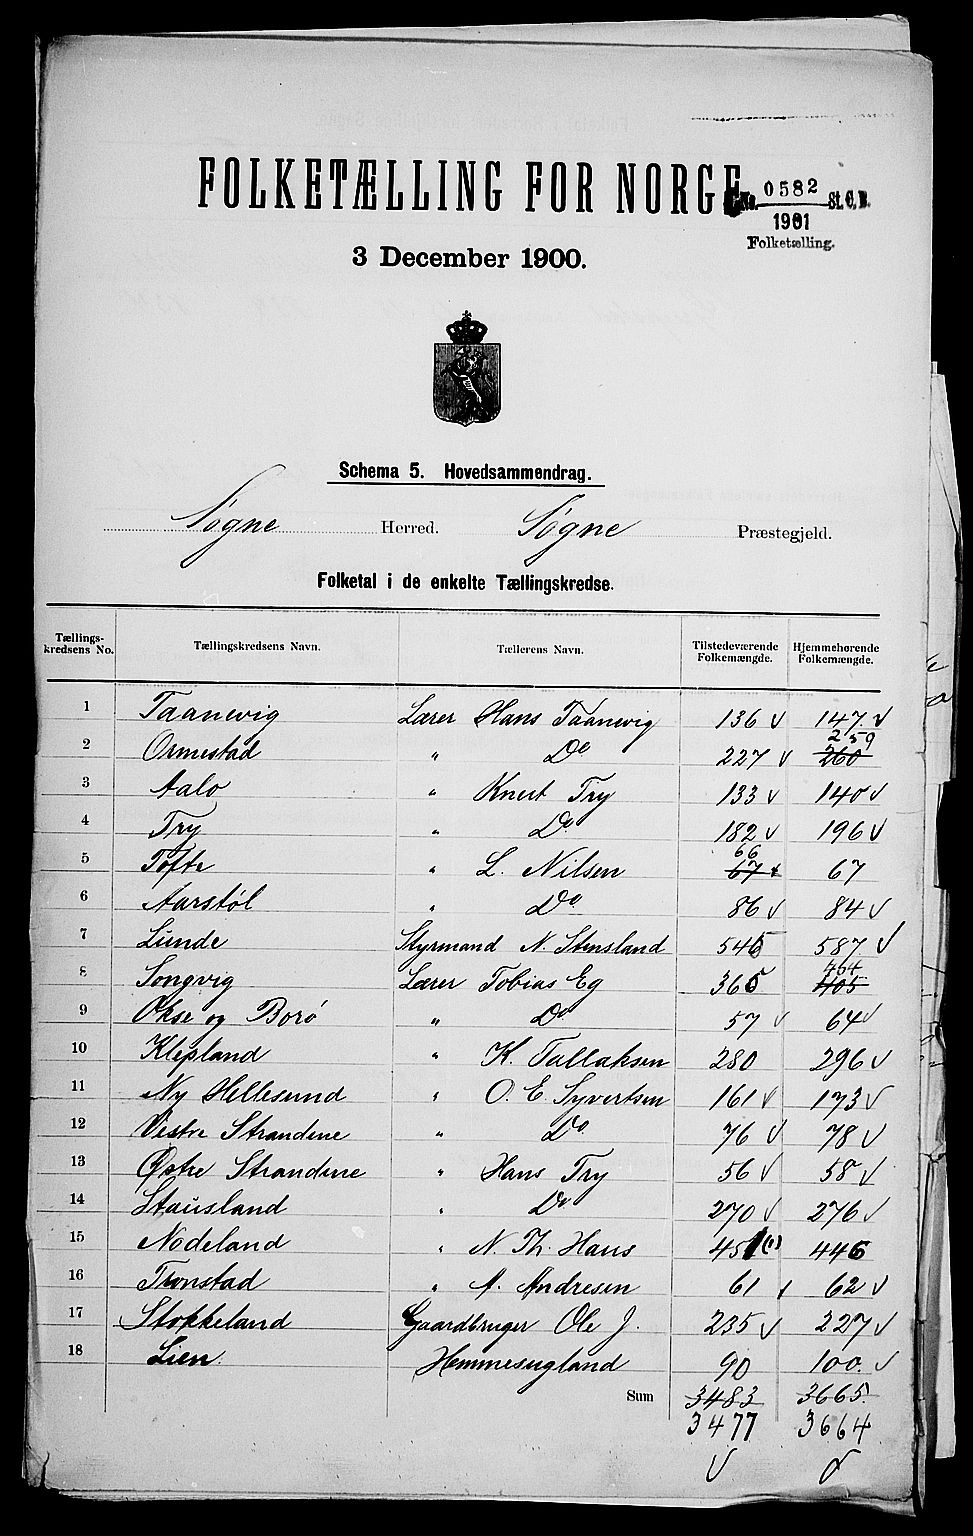 FOLKETÆLLING FOR NORGE
No. 0582 St. C. B.
1901
Folketælling.
3 December 1900.
Schema 5. Hovedsammendrag.
Søgne Herred. Søgne Præstegjeld.
Folketal i de enkelte Tællingskredse.
Tællings-kredsens No. Tællingskredsens Navn. Tællerens Navn. Tilstedeværende Folkemængde. Hjemmehørende Folkemængde.
1 Taanevig Lærer Hans Taanevig 136 147.
2 Ormestad " Do 227 260 259
3 Aalo " Knut Try 133 140
4 Try " Do 182 196
5 Tofte " L. Nilsen 67 66 67
6 Aarstøl " Do 86 84
7 Lunde Styrmand N. Stensland 545 587
8 Songvig Lærer Tobias Eg 365 405 404
9 Okse og Borø " Do 57 64
10 Klepland " K. Tallaksen 280 296
11 Ny Hellesund " O. E. Syvertsen 161 173
12 Vestre Strandene " Do 76 78
13 Østre Strandene " Hans Try 56 58
14 Stausland " Do 270 276
15 Nodeland " N. Th. Haus 451 (1) 446
16 Tronstad " A. Andresen 61 62
17 Stokkeland Gaardbruger Ole J. 235 227
18 Lien. Hemmesugland 90 100.
Sum 3483 3665.
3477 3664